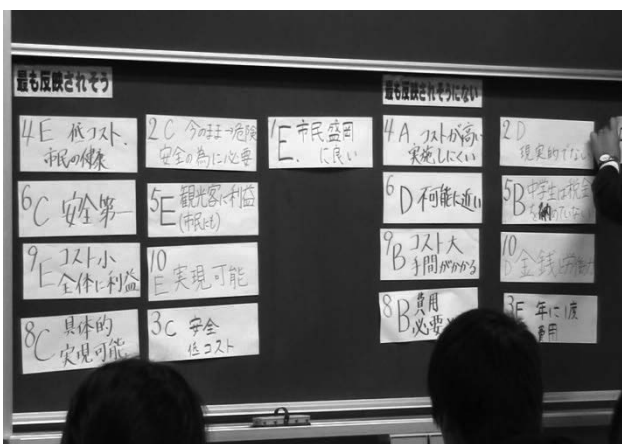 最も反映されそう
4 E 低コスト.
市民の健康
2 C 今のまま→危険
安全の為に必要
1 E. 市民盛岡
に良い
6 C 安全第一
5 E 観光客に利益
(市民にも)
9 E コスト小
全体に利益
10 E 実現可能
8 C 具体的
実現可能
3 C 安全
低コスト
最も反映されそうにない
4 A コストが高い
実施しにくい
2 D
現実的でない
6 D 不可能に近い
5 B 中学生は税金
を納めていない
9 B コスト大
手間がかかる
10 D 金銭
8 B 費用
必要
3 E 年に1度
費用